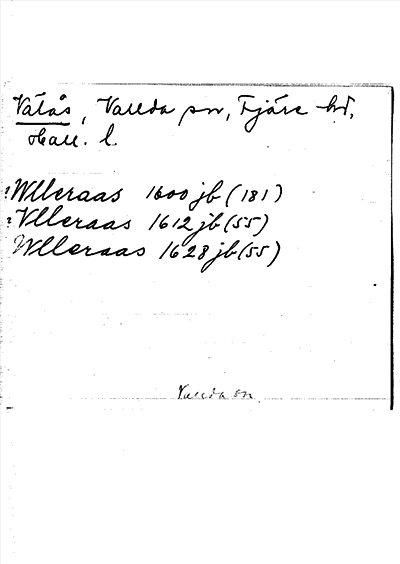 Vålås, Vallda sn, Fjäre hd,
Hall. l.
?Wlleraas 1600 jb (181)
?Vlleraas 1612 jb (55)
Wlleraas 1628 jb (55)
Vallda sn